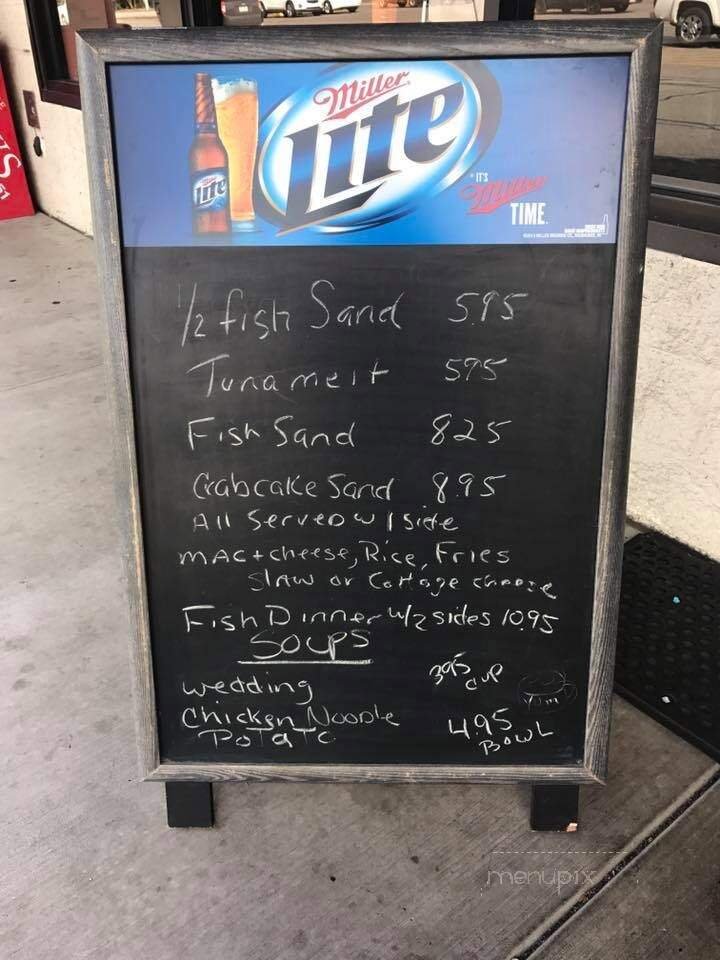 Miller
Lite
Lite
IT'S
Miller
TIME.
1/2 fish Sand 5.95
Tuna melt 595
Fish Sand 825
Crabcake Sand 8.95
All Served w/ 1 side
MAC + cheese, Rice, Fries
Slaw or Cottage cheese
Fish Dinner w/2 sides 10.95
SOUPS
wedding 395 cup
Yum
Chicken Noodle
Potato 4.95 BOWL
menupix